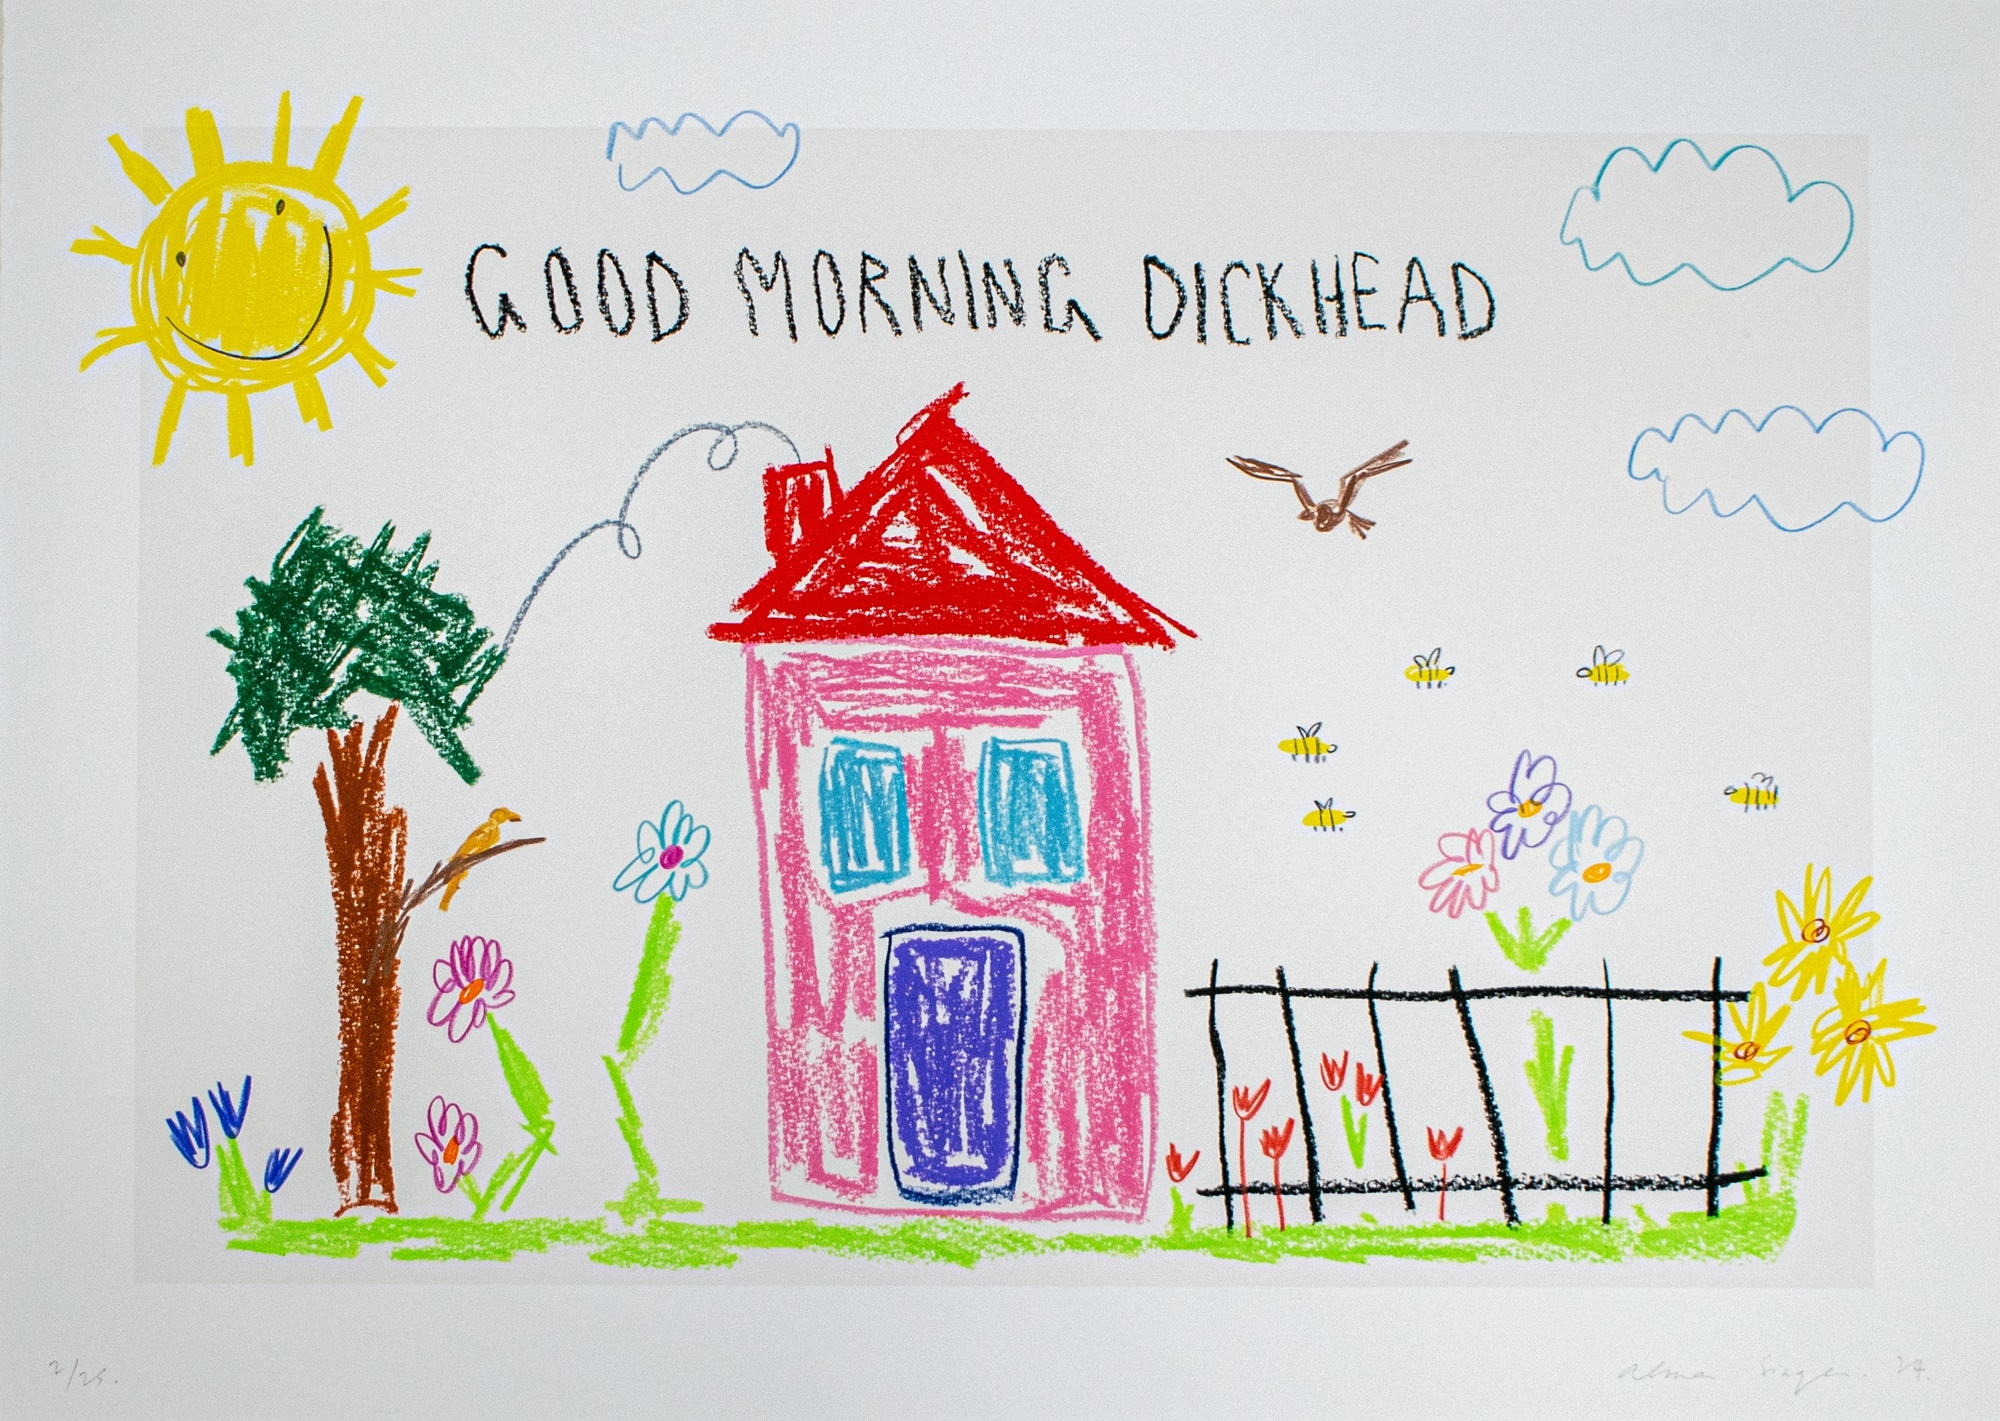 GOOD MORNING DICKHEAD
2/25.
Alma Singer. 24.